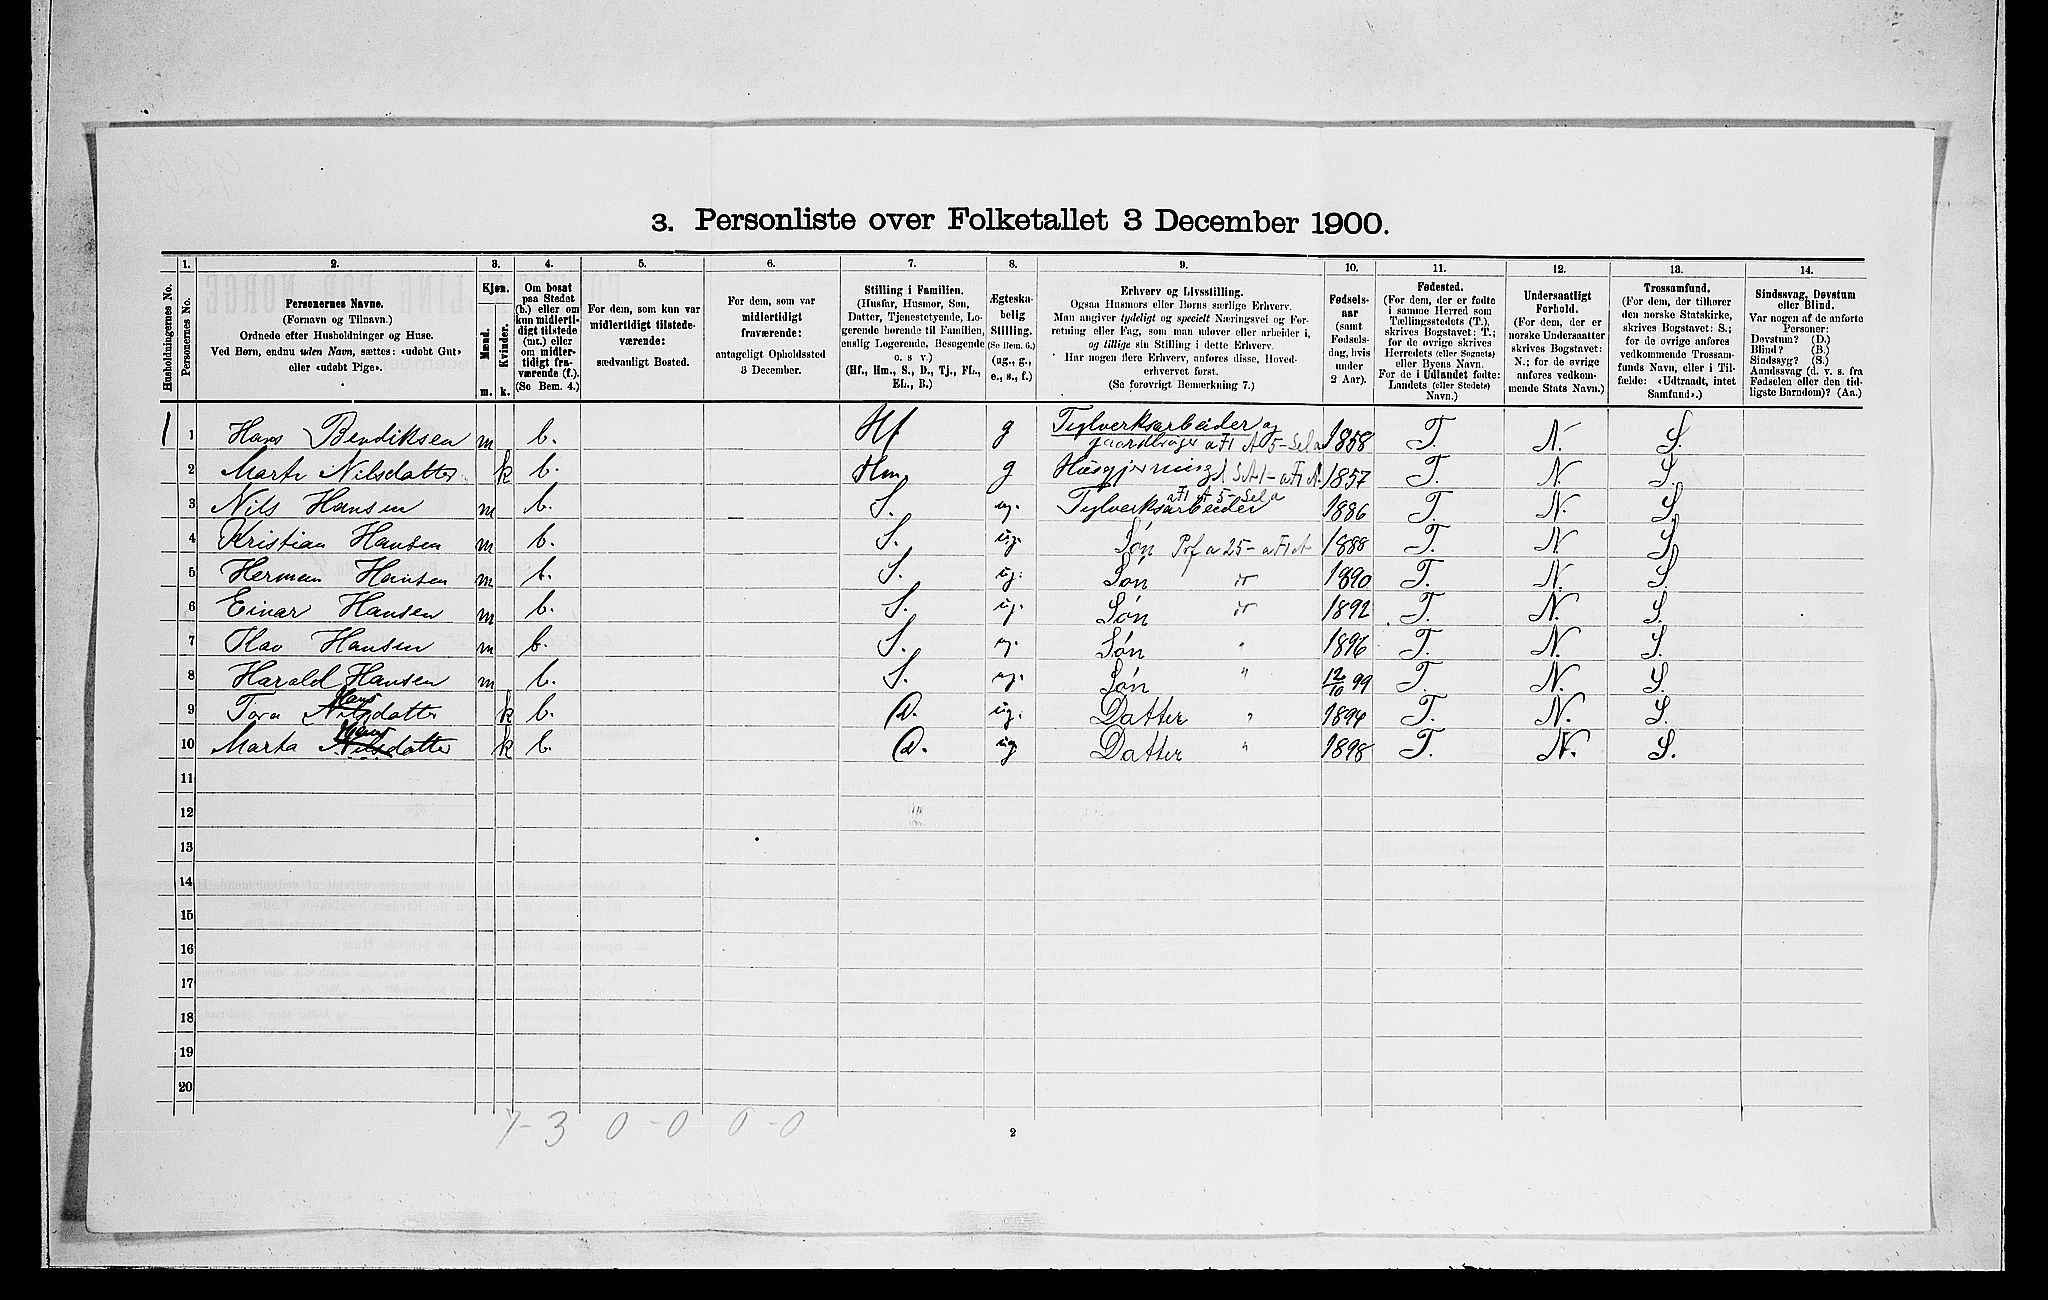 3. Personliste over Folketallet 3 December 1900.
1. 2. 3. 4. 5. 6. 7. 8. 9. 10. 11. 12. 13. 14.
Husholdningernes No.
Personernes No.
Personernes Navne.
(Fornavn og Tilnavn.)
Ordnede efter Husholdninger og Huse.
Ved Børn, endnu uden Navn, sættes: «udøbt Gut»
eller «udøbt Pige».
Kjøn.
Mænd.
Kvinder.
m. k.
Om bosat
paa Stedet
(b.) eller om
kun midlerti-
digt tilstede
(mt.) eller
om midler-
tidigt fra-
værende (f.).
(Se Bem. 4.)
For dem, som kun var
midlertidigt tilstede-
værende:
sædvanligt Bosted.
For dem, som var
midlertidigt
fraværende:
antageligt Opholdssted
3 December.
Stilling i Familien.
(Husfar, Husmor, Søn,
Datter, Tjenestetyende, Lo-
gerende hørende til Familien,
enslig Logerende, Besøgende
o. s v.)
(Hf., Hm., S., D., Tj., FL.,
EL., B.)
Ægteska-
belig
Stilling.
(Se Bem. 6.)
(ug., g.,
e., s., f.)
Erhverv og Livsstilling.
Ogsaa Husmors eller Børns særlige Erhverv.
Man angiver tydeligt og specielt Næringsvei og For-
retning eller Fag, som man udøver eller arbeider i,
og tillige sin Stilling i dette Erhverv.
Har nogen flere Erhverv, anføres disse, Hoved-
erhvervet først.
(Se forøvrigt Bemerkning 7.)
Fødsels-
aar
(samt
Fødsels-
dag, hvis
under
2 Aar).
Fødested.
(For dem, der er fødte
i samme Herred som
Tællingsstedets (T.),
skrives Bogstavet: T.;
for de øvrige skrives
Herredets (eller Sognets)
eller Byens Navn.
For de i Udlandet fødte:
Landets (eller Stedets)
Navn.)
Undersaatligt
Forhold.
(For dem, der er
norske Undersaatter
skrives Bogstavet:
N.; for de øvrige
anføres vedkom-
mende Stats Navn.)
Trossamfund.
(For dem, der tilhører
den norske Statskirke,
skrives Bogstavet: S.;
for de øvrige anføres
vedkommende Trossam-
funds Navn, eller i Til-
fælde: «Udtraadt, intet
Samfund».)
Sindssvag, Døvstum
eller Blind.
Var nogen af de anførte
Personer:
Døvstum? (D.)
Blind? (B.)
Sindssyg? (S.)
Aandssvag (d. v. s. fra
Fødselen eller den tid-
ligste Barndom)? (Aa.)
1 1 Hans Bendiksen m b. Hf g Teglverksarbeider og 1858 T. N. S.
gaardbruger
2 Marte Nilsdatter k b. Hm g Husgjerning 1857 T. N. S.
3 Nils Hansen m b. S. ug. Teglverksarbeider 1886 T. N. S.
4 Kristian Hansen m b. S. ug. Søn 1888 T. N. S.
5 Herman Hansen m b. S. ug. Søn 1890 T. N. S.
6 Einar Hansen m b. S. ug. Søn 1892 T. N. S.
7 Olav Hansen m b. S. ug. Søn " 1896 T. N. S.
8 Harald Hansen m b. S. ug. Søn " 12/10 99 T. N. S.
Hans
9 Tora Nilsdatter k b. D. ug. Datter " 1894 T. N. S.
Hans
10 Marta Nilsdatter k b. D. ug Datter " 1898 T. N. S.
11
12
13
14
15
16
17
18
19
20
7-3 0-0 0-0
2